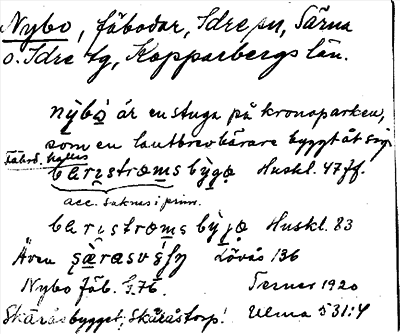 Nybo, fäbodar, Idre sn, Särna
o. Idre tg, Kopparbergs län.
nỳbó är en stuga på kronoparken,
som en lantbrevbärare byggt åt sig.
fäbod. kallas
barɩstrœmsbỳgǝ Huskl. 47 ff.
acc. saknas i prim.
barɩstrœmsbỳjǝ Huskl. 83
Även Lövås 136
Nybo fäb. G.76. Terner 1920
Skäråsbygget, Skäråstorp! Ulma 531:4